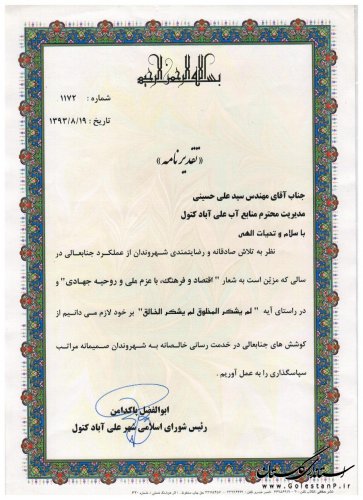 بسم الله الرحمن الرحیم
شماره : ۱۱۷۲
تاریخ : ۱۳۹۳/۸/۱۹
«تقدیرنامه»
جناب آقای مهندس سید علی حسینی
مدیریت محترم منابع آب علی آباد کتول
با سلام و تحیات الهی
نظر به تلاش صادقانه و رضایتمندی شهروندان از عملکرد جنابعالی در
سالی که مزین است به شعار "اقتصاد و فرهنگ، با عزم ملی و روحیه جهادی" و
در راستای آیه "لم یشکر المخلوق لم یشکر الخالق" بر خود لازم می دانیم از
کوشش های جنابعالی در خدمت رسانی خالصانه به شهروندان صمیمانه مراتب
سپاسگذاری را به عمل آوریم .
ابوالفضل پاکدامن
رئیس شورای اسلامی شهر علی آباد کتول
استانداری گلستان
www.GolestanP.ir